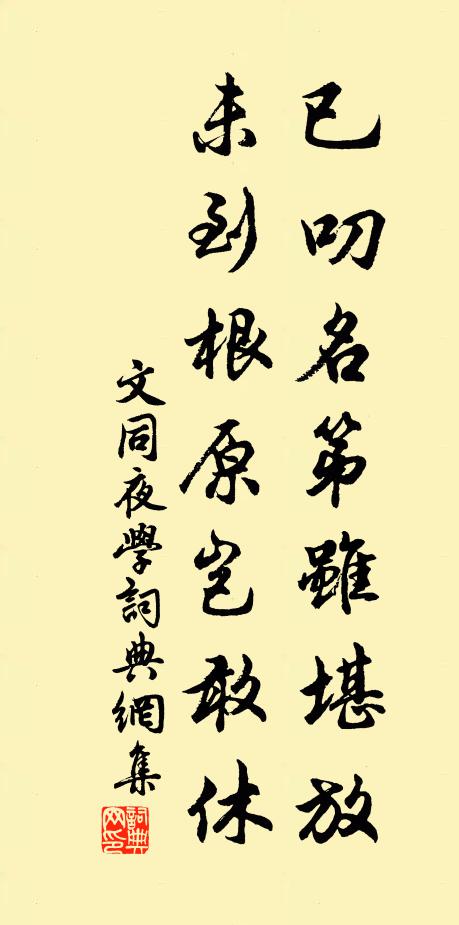 已叨名第雖堪放
未到根原豈敢休
文同夜學詞典網集
詞典网印